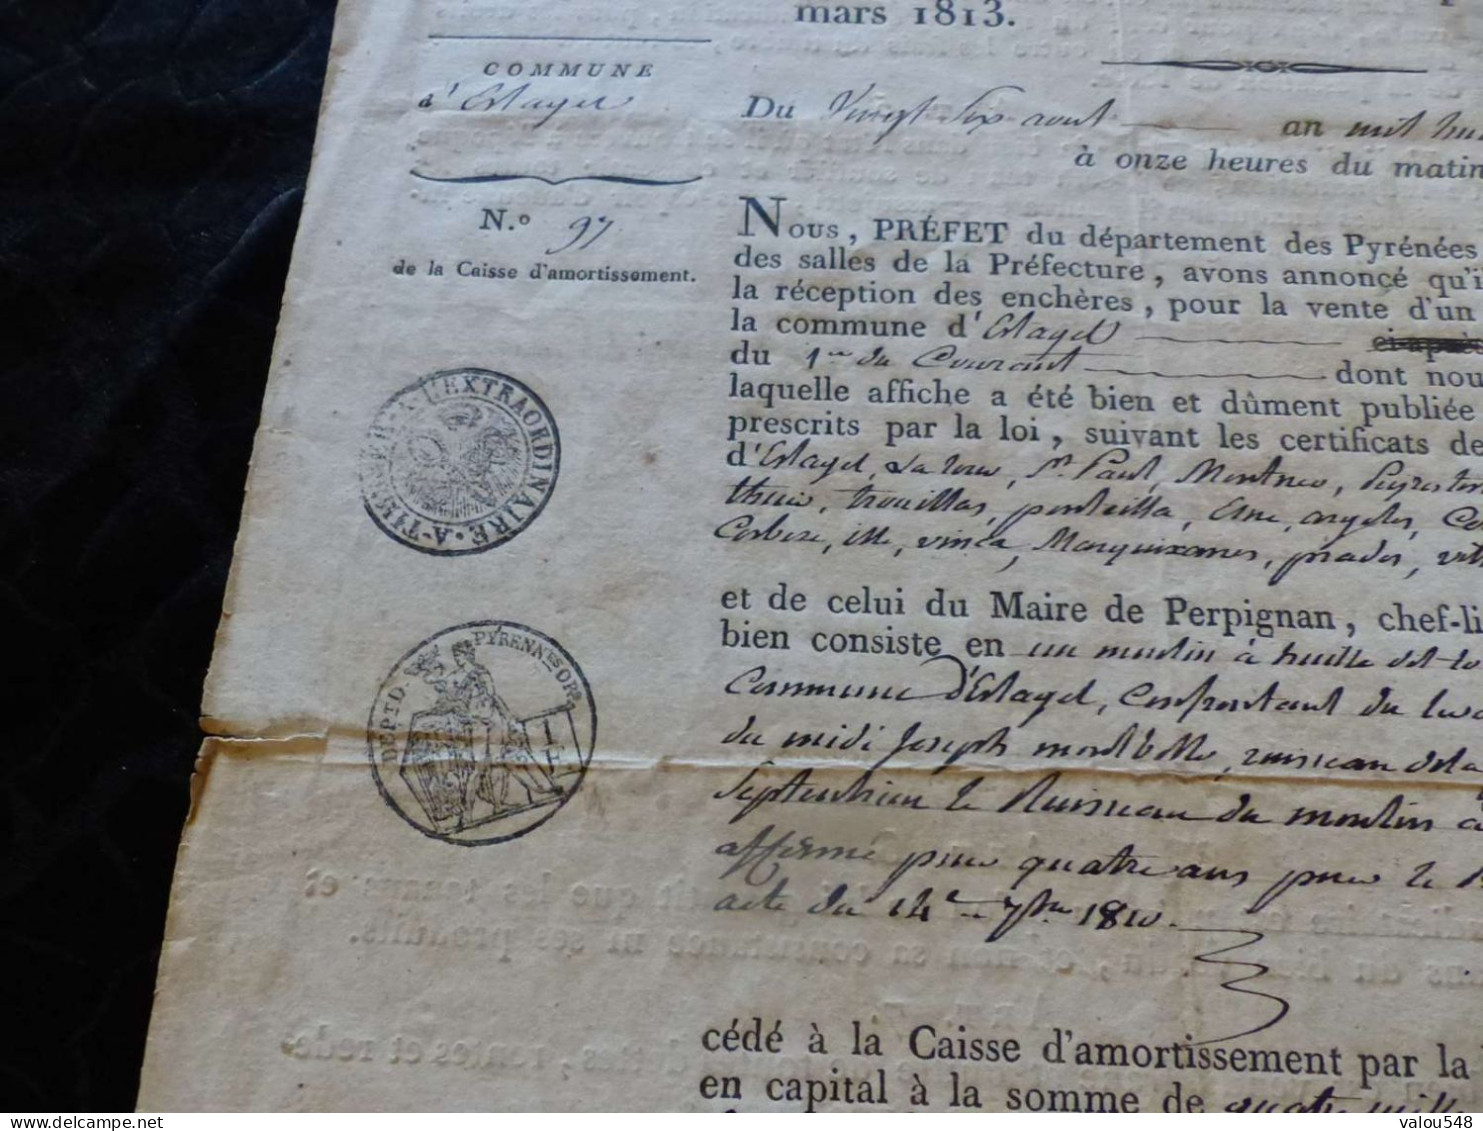 mars 1813.
COMMUNE
d'Estagel
N.º 97
de la Caisse d'amortissement.
Du Vingt Six aout an mil hui
à onze heures du matin
Nous, PRÉFET du département des Pyrénées
des salles de la Préfecture, avons annoncé qu'i
la réception des enchères, pour la vente d'un
la commune d'Estagel ci-après
du 1er du Courant dont nou
laquelle affiche a été bien et dûment publiée
prescrits par la loi, suivant les certificats de
d'Estagel, La tour, St Paul, Montner, Peyrestor
thuir, trouillas, ponteilla, Elne, argeles, C
Corbere, ille, vinca, Marquixanes, prades, 
et de celui du Maire de Perpignan, chef-li
bien consiste en un moulin à huille
Commune d'Estagel, Confrontant du
du midi Joseph ruisseau
Septentrion le Ruisseau du moulin à
affermé pour quatre ans pour le
acte du 14 7bre 1810.
cédé à la Caisse d'amortissement par la
en capital à la somme de quatre mille
L'EXTRAORDINAIRE
DEPT D. PYRENNÉES ORles
valou548